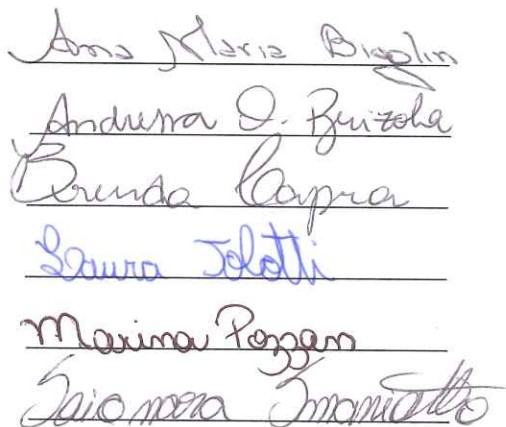 Ana Maria Bigolin
Andressa D. Brizola
Brenda Capra
Laura Tolotti
Marina Pozzan
Saionara Smaniotto